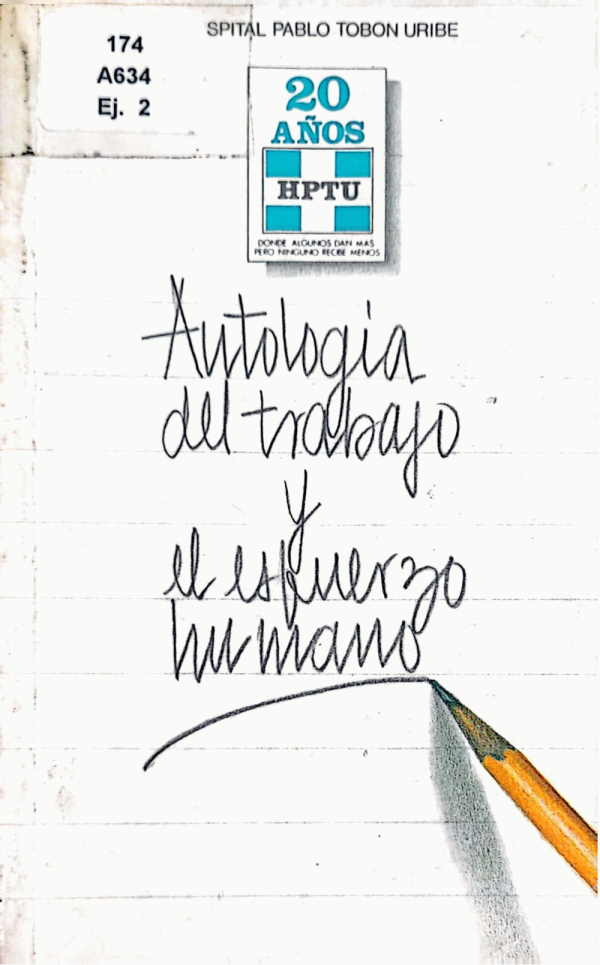 174
A634
Ej. 2
SPITAL PABLO TOBON URIBE
20
AÑOS
HPTU
DONDE ALGUNOS DAN MAS
PERO NINGUNO RECIBE MENOS
Antología
del trabajo
y
el esfuerzo
humano